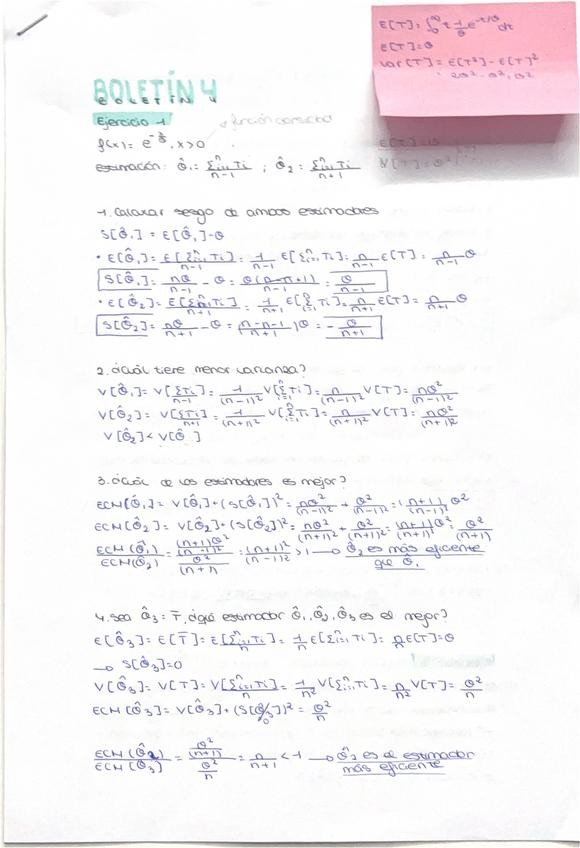 E[T] = ∫₀^∞ t 1/θ e^(-t/θ) dt
E[T] = θ
Var[T] = E[T²] - E[T]²
2θ² - θ² = θ²
BOLETÍN 4
BOLETÍN 4
Ejercicio 1
función
f(x) = e^(-x/θ), x>0
estimación: θ̂₁ = Σⁿᵢ₌₁ Ti / n-1 ; θ̂₂ = Σⁿᵢ₌₁ Ti / n+1
1. Calcular sesgo de ambos estimadores
S[θ̂₁] = E[θ̂₁] - θ
• E[θ̂₁] = E[Σⁿᵢ₌₁ Ti]/n-1 = 1/n-1 E[Σⁿᵢ₌₁ Ti] = n/n-1 E[T] = n/n-1 θ
S[θ̂₁] = nθ/n-1 - θ = θ(n-n+1)/n-1 = θ/n-1
• E[θ̂₂] = E[Σⁿᵢ₌₁ Ti]/n+1 = 1/n+1 E[Σⁿᵢ₌₁ Ti] = n/n+1 E[T] = n/n+1 θ
S[θ̂₂] = nθ/n+1 - θ = (n-n-1)θ/n+1 = - θ/n+1
2. ¿Cuál tiene menor varianza?
V[θ̂₁] = V[ΣTi/n-1] = 1/(n-1)² V[Σⁿᵢ₌₁ Ti] = n/(n-1)² V[T] = nθ²/(n-1)²
V[θ̂₂] = V[ΣTi/n+1] = 1/(n+1)² V[Σⁿᵢ₌₁ Ti] = n/(n+1)² V[T] = nθ²/(n+1)²
V[θ̂₂] < V[θ̂₁]
3. ¿Cuál de los estimadores es mejor?
ECM[θ̂₁] = V[θ̂₁] + (S[θ̂₁])² = nθ²/(n-1)² + θ²/(n-1)² = (n+1)/(n-1)² θ²
ECM[θ̂₂] = V[θ̂₂] + (S[θ̂₂])² = nθ²/(n+1)² + θ²/(n+1)² = (n+1)θ²/(n+1)² = θ²/(n+1)
ECM(θ̂₁)/ECM(θ̂₂) = ((n+1)θ²/(n-1)²)/(θ²/(n+1)) = (n+1)²/(n-1)² > 1 → θ̂₂ es más eficiente
que θ̂₁
4. Sea θ̂₃ = T̄, ¿qué estimador θ̂₁, θ̂₂, θ̂₃ es el mejor?
E[θ̂₃] = E[T̄] = E[Σⁿᵢ₌₁ Ti]/n = 1/n E[Σⁿᵢ₌₁ Ti] = n/n E[T] = θ
→ S[θ̂₃] = 0
V[θ̂₃] = V[T̄] = V[Σⁿᵢ₌₁ Ti]/n = 1/n² V[Σⁿᵢ₌₁ Ti] = n/n² V[T] = θ²/n
ECM[θ̂₃] = V[θ̂₃] + (S[θ̂₃])² = θ²/n
ECM(θ̂₂)/ECM(θ̂₃) = (θ²/(n+1))/(θ²/n) = n/n+1 < 1 → θ̂₂ es el estimador
más eficiente